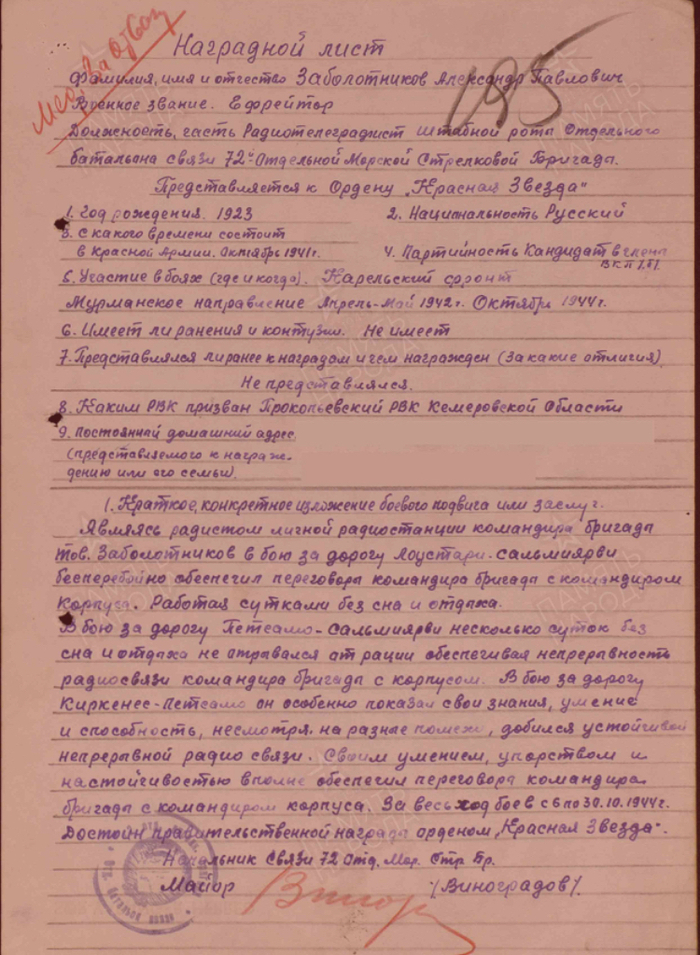 Мед. За отвагу
195
Наградной лист
Фамилия, имя и отчество Заболотников Александр Павлович
Военное звание. Ефрейтор
Должность, часть Радиотелеграфист штабной роты Отдельного
батальона связи 72й Отдельной Морской Стрелковой Бригады.
Представляется к Ордену „Красная Звезда"
1. Год рождения. 1923
2. Национальность Русский
3. С какого времени состоит
в Красной Армии. Октябрь 1941г.
4. Партийность Кандидат в члены
ВКП/б/.
5. Участие в боях (где и когда). Карельский фронт
Мурманское направление Апрель-Май 1942г. Октябрь 1944г.
6. Имеет ли ранения и контузии. Не имеет
7. Представлялся ли ранее к наградам и чем награжден (За какие отличия)
Не представлялся.
8. Каким РВК призван Прокопьевский РВК Кемеровской Области
9. постоянный домашний адрес
(представляемого к награж-
дению или его семьи).
1. Краткое, конкретное изложение боевого подвига или заслуг.
Являясь радистом личной радиостанции командира бригады
тов. Заболотников в бою за дорогу Лоустари-Сальмиярви
бесперебойно обеспечил переговоры командира бригады с командиром
Корпуса. Работая сутками без сна и отдыха.
В бою за дорогу Петсамо-Сальмиярви несколько суток без
сна и отдыха не отрывался от рации обеспечивая непрерывность
радиосвязи командира бригады с корпусом. В бою за дорогу
Киркенес-Петсамо он особенно показал свои знания, умение
и способность, несмотря на разные помехи, добился устойчивой
непрерывной радио связи. Своим умением, упорством и
настойчивостью вполне обеспечил переговоры командира
бригады с командиром корпуса. За весь ход боев с 6 по 30.10.1944г.
Достоин правительственной награды орденом „Красная Звезда".
Начальник Связи 72 Отд. Мор. Стр. Бр.
Майор
/Виноградов/.
ПАМЯТЬ
НАРОДА